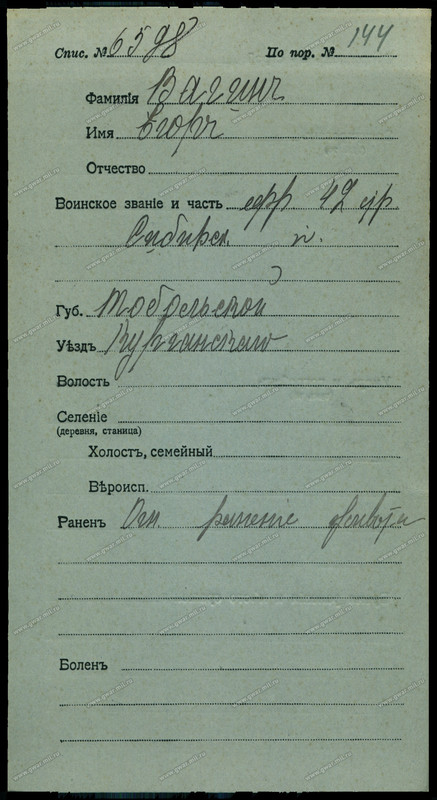 Спис. № 6598 По пор. № 144
Фамилія Вагинъ
Имя Егоръ
Отчество
Воинское званіе и часть ефр 42 стр.
Сибирск. п.
Губ. Тобольской
Уѣздъ Курганскаго
Волость
Селеніе
(деревня, станица)
Холостъ, семейный
Вѣроисп.
Раненъ Огн. раненіе живота
Боленъ